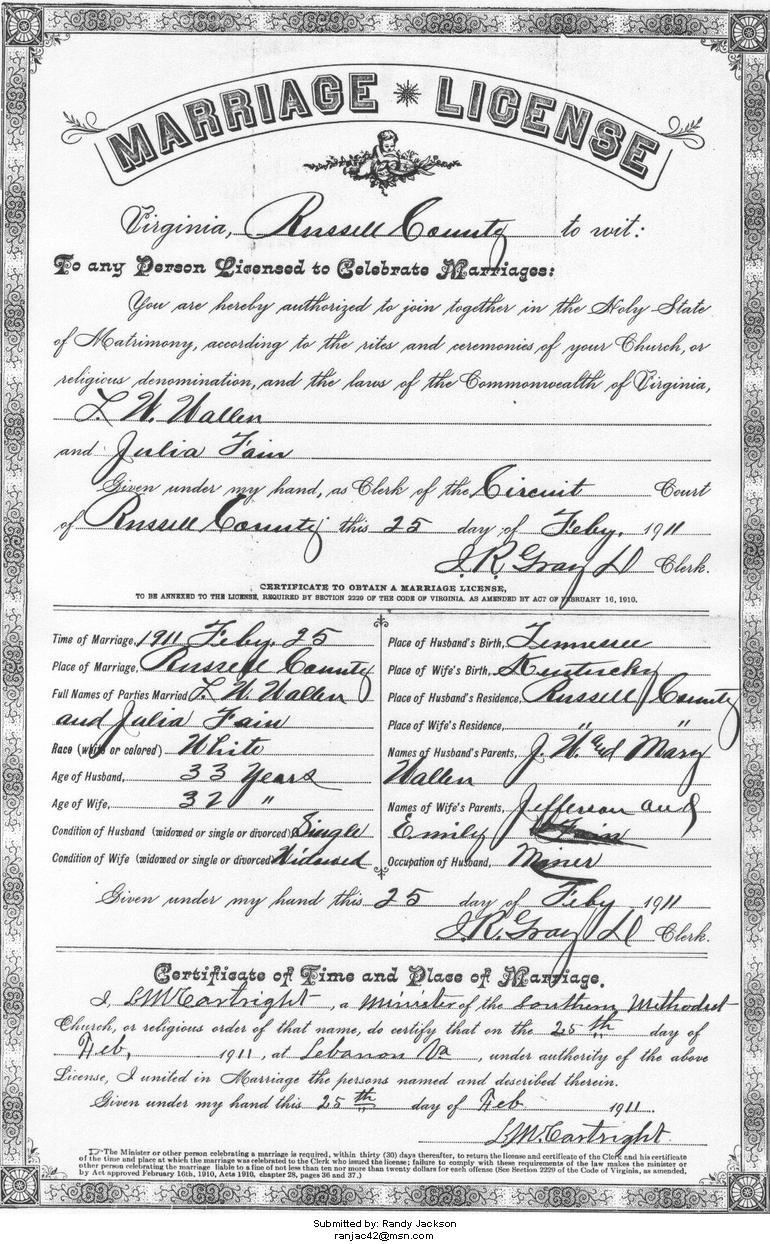 MARRIAGE LICENSE
Virginia, Russell County to wit:
To any Person Licensed to Celebrate Marriages:
You are hereby authorized to join together in the Holy State
of Matrimony, according to the rites and ceremonies of your Church, or
religious denomination, and the laws of the Commonwealth of Virginia,
L. W. Wallen
and Julia Fain
Given under my hand, as Clerk of the Circuit Court
of Russell County this 25 day of Feby. 1911
J. R. Gray D Clerk.
CERTIFICATE TO OBTAIN A MARRIAGE LICENSE,
TO BE ANNEXED TO THE LICENSE, REQUIRED BY SECTION 2229 OF THE CODE OF VIRGINIA, AS AMENDED BY ACT OF FEBRUARY 16, 1910.
Time of Marriage, 1911 Feby. 25
Place of Marriage, Russell County
Full Names of Parties Married L. W. Wallen
and Julia Fain
Race (white or colored) White
Age of Husband, 33 Years
Age of Wife, 32 "
Condition of Husband (widowed or single or divorced) Single
Condition of Wife (widowed or single or divorced) Widowed
Place of Husband's Birth, Tennessee
Place of Wife's Birth, Kentucky
Place of Husband's Residence, Russell County
Place of Wife's Residence, " "
Names of Husband's Parents, J. W. and Mary
Wallen
Names of Wife's Parents, Jefferson and
Emily
Occupation of Husband, Miner
Given under my hand this 25 day of Feby 1911
J. R. Gray D Clerk.
Certificate of Time and Place of Marriage.
I, L M Cartright, a Minister of the Southern Methodist
Church, or religious order of that name, do certify that on the 25th day of
Feb, 1911, at Lebanon Va, under authority of the above
License, I united in Marriage the persons named and described therein.
Given under my hand this 25th day of Feb 1911.
L M Cartright
The Minister or other person celebrating a marriage is required, within thirty (30) days thereafter, to return the license and certificate of the Clerk and his certificate
of the time and place at which the marriage was celebrated to the Clerk who issued the license; failure to comply with these requirements of the law makes the minister or
other person celebrating the marriage liable to a fine of not less than ten nor more than twenty dollars for each offense (See Section 2229 of the Code of Virginia, as amended,
by Act approved February 16th, 1910, Acts 1910, chapter 28, pages 36 and 37.)
Submitted by: Randy Jackson
ranjac42@msn.com